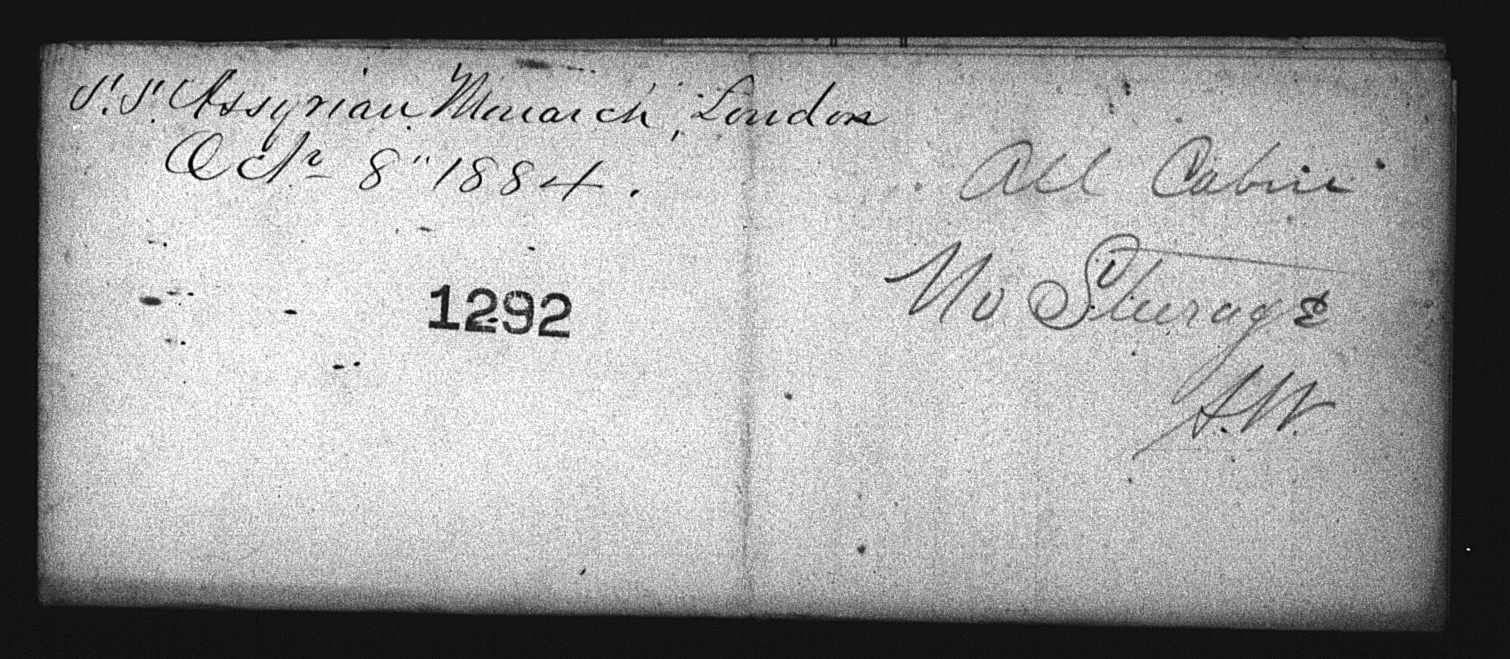 S.S. Assyrian Monarch, London
Octr 8" 1884.
All Cabin
No Steerage
1292
A.W.